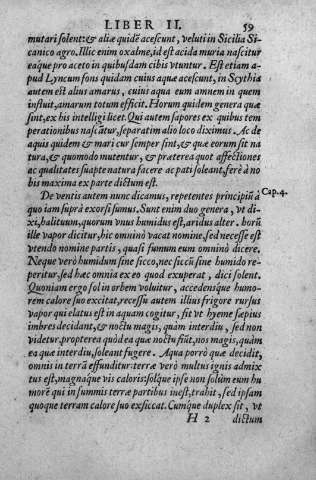 LIBER II. 59
mutari solent: & aliæ quidē acescunt, veluti in Sicilia Si-
canico agro. Illic enim oxalme, id est acida muria nascitur
eaque pro aceto in quibusdam cibis vtuntur. Est etiam a-
pud Lyncum fons quidam cuius aquæ acescunt, in Scythia
autem est alius amarus, cuius aqua eum amnem in quem
influit, amarum totum efficit. Horum quidem genera quæ
sint, ex his intelligi licet. Qui autem sapores ex quibus tem
perationibus nascātur, separatim alio loco diximus. Ac de
aquis quidem & mari cur semper sint, & quæ eorum sit na
tura, & quomodo mutentur, & præterea quot affectiones
ac qualitates suapte natura facere ac pati soleant, ferè à no
bis maxima ex parte dictum est.
De ventis autem nunc dicamus, repetentes principiū à Cap. 4.
quo iam suprà exorsi sumus. Sunt enim duo genera, vt di-
xi, halituum, quorum vnus humidus est, aridus alter. horū
ille vapor dicitur, hic omnino vacat nomine, sed necesse est
vtendo nomine partis, quasi fumum eum omninò dicere.
Neque verò humidum sine sicco, nec siccū sine humido re-
peritur, sed hæc omnia ex eo quod exuperat, dici solent.
Quoniam ergo sol in orbem voluitur, accedensque humo-
rem calore suo excitat, recessu autem illius frigore rursus
vapor qui elatus est in aquam cogitur, fit vt hyeme sæpius
imbres decidant, & noctu magis, quàm interdiu, sed non
videtur. propterea quòd ea quæ noctu fiūt, nos magis, quàm
ea quæ interdiu, soleant fugere. Aqua porrò quæ decidit,
omnis in terrā effunditur: terræ verò multus ignis admix
tus est, magnaque vis caloris: solq́ue ipse non solùm eum hu
morē qui in summis terræ partibus inest, trahit, sed ipsam
quoque terram calore suo exsiccat. Cumq́ue duplex sit, vt
H 2 dictum